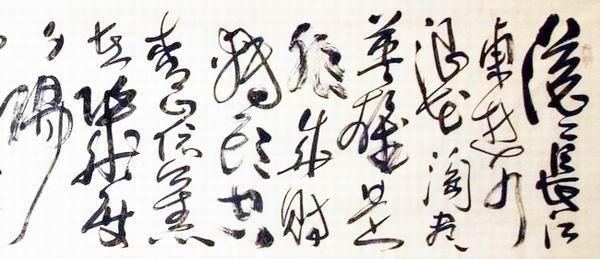 滾滾長江
東逝水
浪花淘盡
英雄是
非成敗
轉頭空
青山依舊
在幾度
夕陽